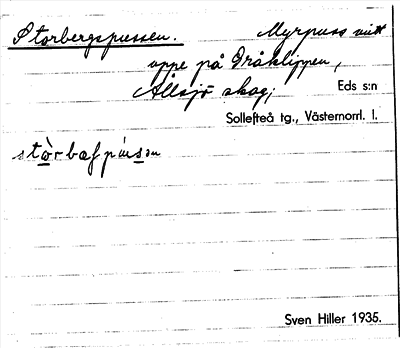 Storbergspussen. Myrpuss mitt
uppe på Gråklippen,
Ållsjö skog; Eds s:n
Sollefteå tg., Västernorrl. l.
Sven Hiller 1935.